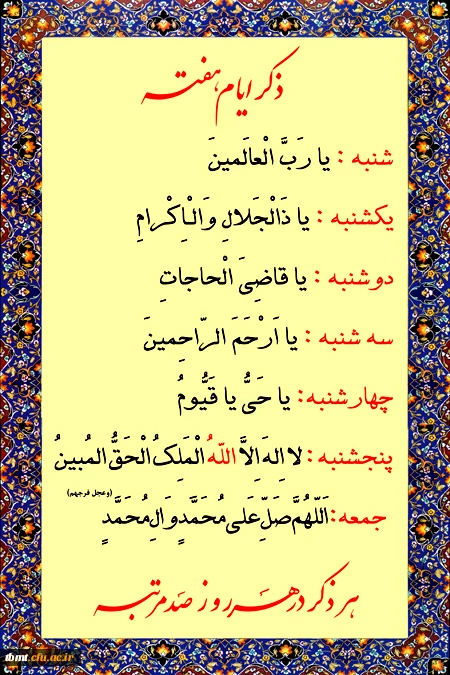 ذکر ایام هفته
شنبه : یا رَبَّ الْعالَمینَ
یکشنبه : یا ذَالْجَلالِ وَالْاِکْرامِ
دوشنبه : یا قاضِیَ الْحاجاتِ
سه شنبه : یا اَرْحَمَ الرّاحِمینَ
چهارشنبه: یا حَیُّ یا قَیُّومُ
پنجشنبه: لا اِلهَ اِلاَّ اللّهُ الْمَلِکُ الْحَقُّ الْمُبینُ
جمعه: اَللّهُمَّ صَلِّ عَلی مُحَمَّدٍ وَ الِ مُحَمَّدٍ (وعجل فرجهم)
هر ذکر در هر روز صد مرتبه
tbmt.cfu.ac.ir